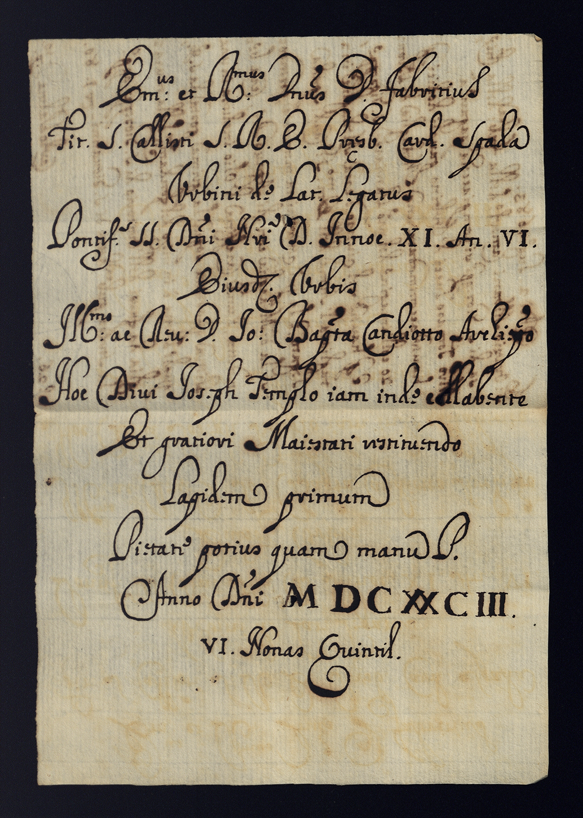 Em:us et R:mus Dnus D. Fabritius
Tit. S. Callisti S. R. E. Presb. Card. Spada
Urbini de Lat. Legatus
Pontif. SS. Dñi Nri D. Innoc. XI. An. VI.
Eiusd. Urbis
Ill:mo ac Rev: D. Io: Bapta Candiotto
Hoc Divi Joseph Templo iam inde collabente
Et gratiori Maiestati restituendo
Lapidem primum
Pietate potius quam manu P.
Anno Dñi M DC XXC III.
VI. Nonas Quintil.